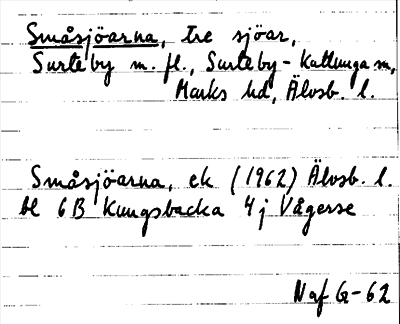 Småsjöarna, tre sjöar,
Surteby m. fl., Surteby-Kattunga sn,
Marks hd, Älvsb. l.
Småsjöarna, ek (1962) Älvsb. l.
bl 6B Kungsbacka 4j Vågerse
Naf G-62